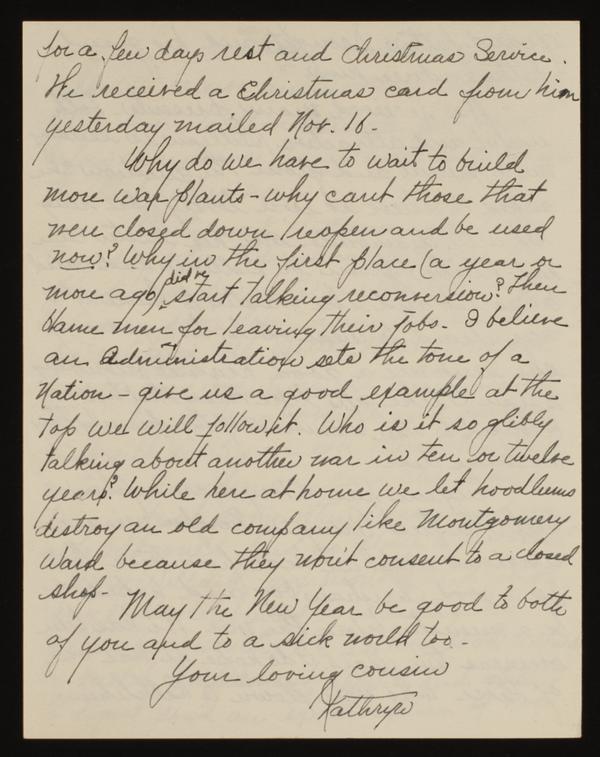 for a few days rest and Christmas Service.
We received a Christmas card from him
yesterday mailed Nov. 16.
Why do we have to wait to build
more war plants - why cant those that
were closed down reopen and be used
now? Why in the first place (a year or
more ago) did we start talking reconversion? Then
blame men for leaving their jobs. I believe
an administration sets the tone of a
Nation - give us a good example at the
top we will follow it. Who is it so glibly
talking about another war in ten or twelve
years? While here at home we let hoodlums
destroy an old company like Montgomery
Ward because they won't consent to a closed
shop.
May the New Year be good to both
of you and to a sick world too.
Your loving cousin
Kathryn